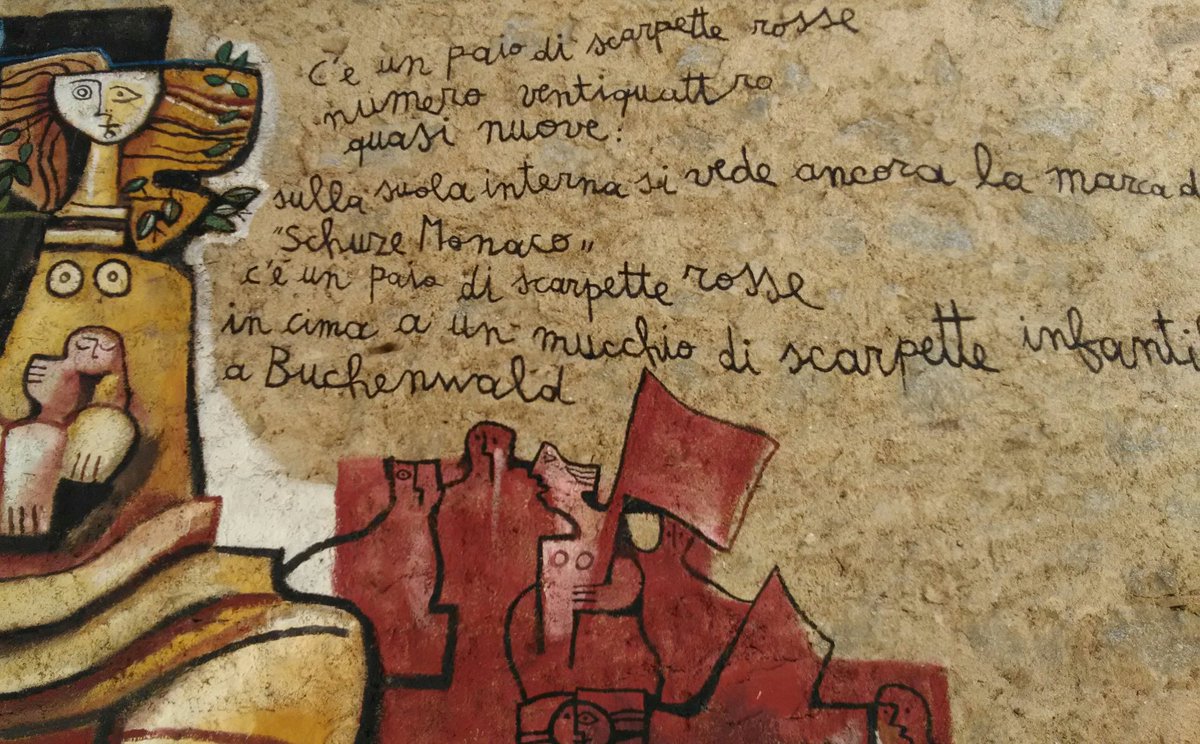 c'è un paio di scarpette rosse
numero ventiquattro
quasi nuove:
sulla suola interna si vede ancora la marca d
"Schuze Monaco"
c'è un paio di scarpette rosse
in cima a un mucchio di scarpette infanti
a Buchenwald